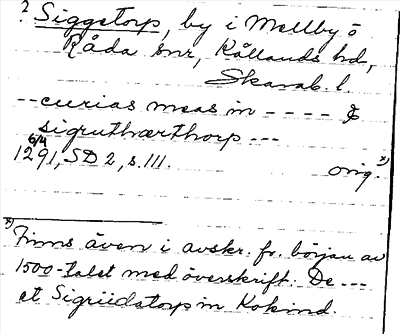 ? Siggetorp, by i Mellby o
Råda snr, Kållands hd,
Skarab. l.
-- curias meas in ---- &
sigruthærthorp ---
6/4
1291, SD 2, s. 111. orig. x)
x) Finns även i avskr. fr. början av
1500-talet med överskrift. De ---
et Sigriidstorp in Kokind.